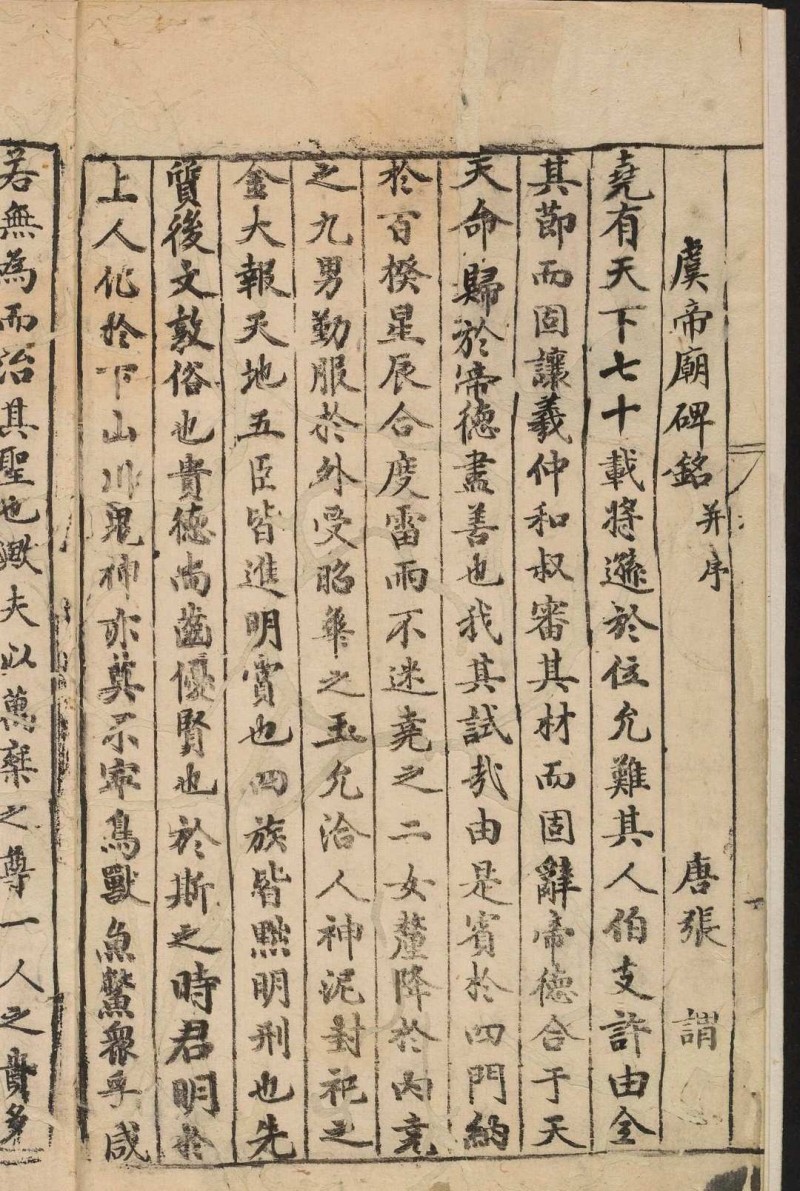 虞帝廟碑銘 并序 唐張謂
堯有天下七十載將遜於位允難其人伯支許由全
其節而固讓羲仲和叔審其材而固辭帝德合于天
天命歸於帝德盡善也我其試哉由是賓於四門納
於百揆星辰合度雷雨不迷堯之二女釐降於內堯
之九男勤服於外受昭華之玉允洽人神泥封祀之
金大報天地五臣皆進明賞也四族皆黜明刑也先
質後文敦俗也貴德尚齒優賢也於斯之時君明於
上人化於下山川鬼神亦莫不寧鳥獸魚鱉衆乎咸
若無為而治其聖也歟夫以萬乘之尊一人之貴多